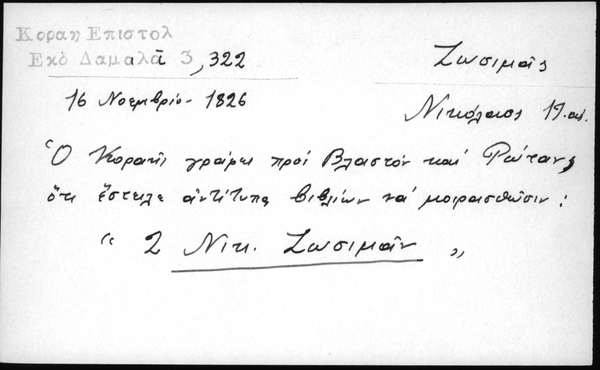 Κοραη Επιστολ
Εκδ Δαμαλᾶ 3, 322
Ζωσιμᾶς
16 Νοεμβρίου 1826
Νικόλαος
Ὁ Κοραῆς γράφει πρὸς Βλαστὸν καὶ Ρώταν
ὅτι ἔστειλε ἀντίτυπα βιβλίων νά μοιρασθῶσιν:
“ 2 Νικ. Ζωσιμᾶν „